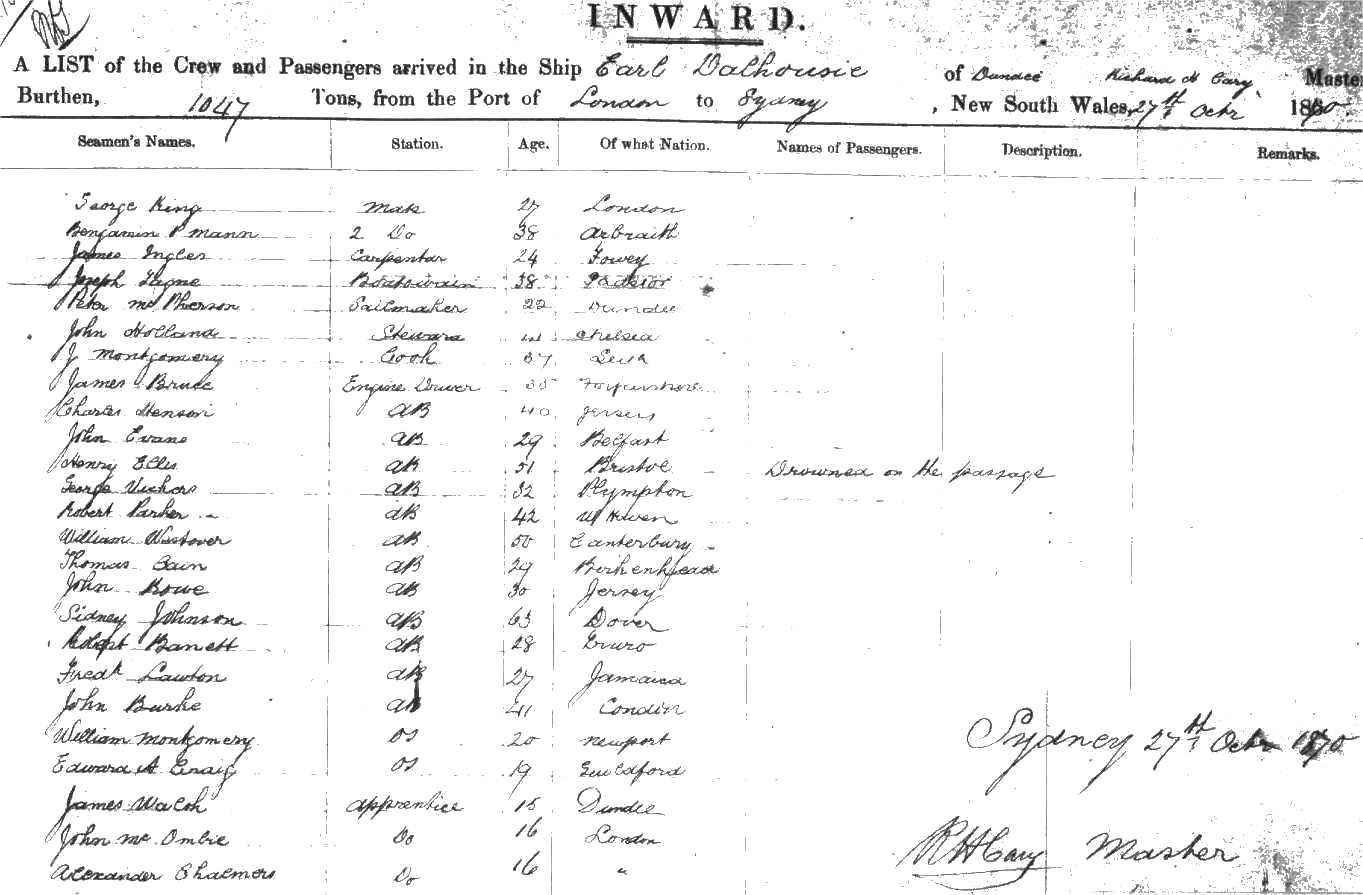 INWARD.
A LIST of the Crew and Passengers arrived in the Ship Earl Dalhousie of Dundee Richard H Cary Master
Burthen, 1047 Tons, from the Port of London to Sydney, New South Wales, 27th Octr 1870
Seamen's Names. Station. Age. Of what Nation. Names of Passengers. Description. Remarks.
George King Mate 27 London
Benjamin P Mann 2 Do 38 Arbraith
James Ingles Carpenter 24 Fowey
Joseph Boatswain 38
Peter McPherson Sailmaker 22 Dundee
John Holland Steward Chelsea
J Montgomery Cook 37 Leith
James Bruce Engine Driver 35
Charles Henson AB 40 Jersey
John Evans AB 29 Belfast
Henry Ellis AB 51 Bristol Drowned on the passage
George Vickers AB 32 Plympton
Robert Parker AB 42
William Westover AB 50 Canterbury
Thomas Cain AB 29 Birkenhead
John Rowe AB 30 Jersey
Sidney Johnson AB 63 Dover
Robert Barrett AB 28 Truro
Fredk Lawton AB 27 Jamaica
John Burke AB 41 London
William Montgomery OS 20 Newport
Edward A Craig OS 19 Guildford
Sydney 27th Octr 1870
James Walsh Apprentice 15 Dundee
John McOmbie Do 16 London
RHCary Master
Alexander Chalmers Do 16 "